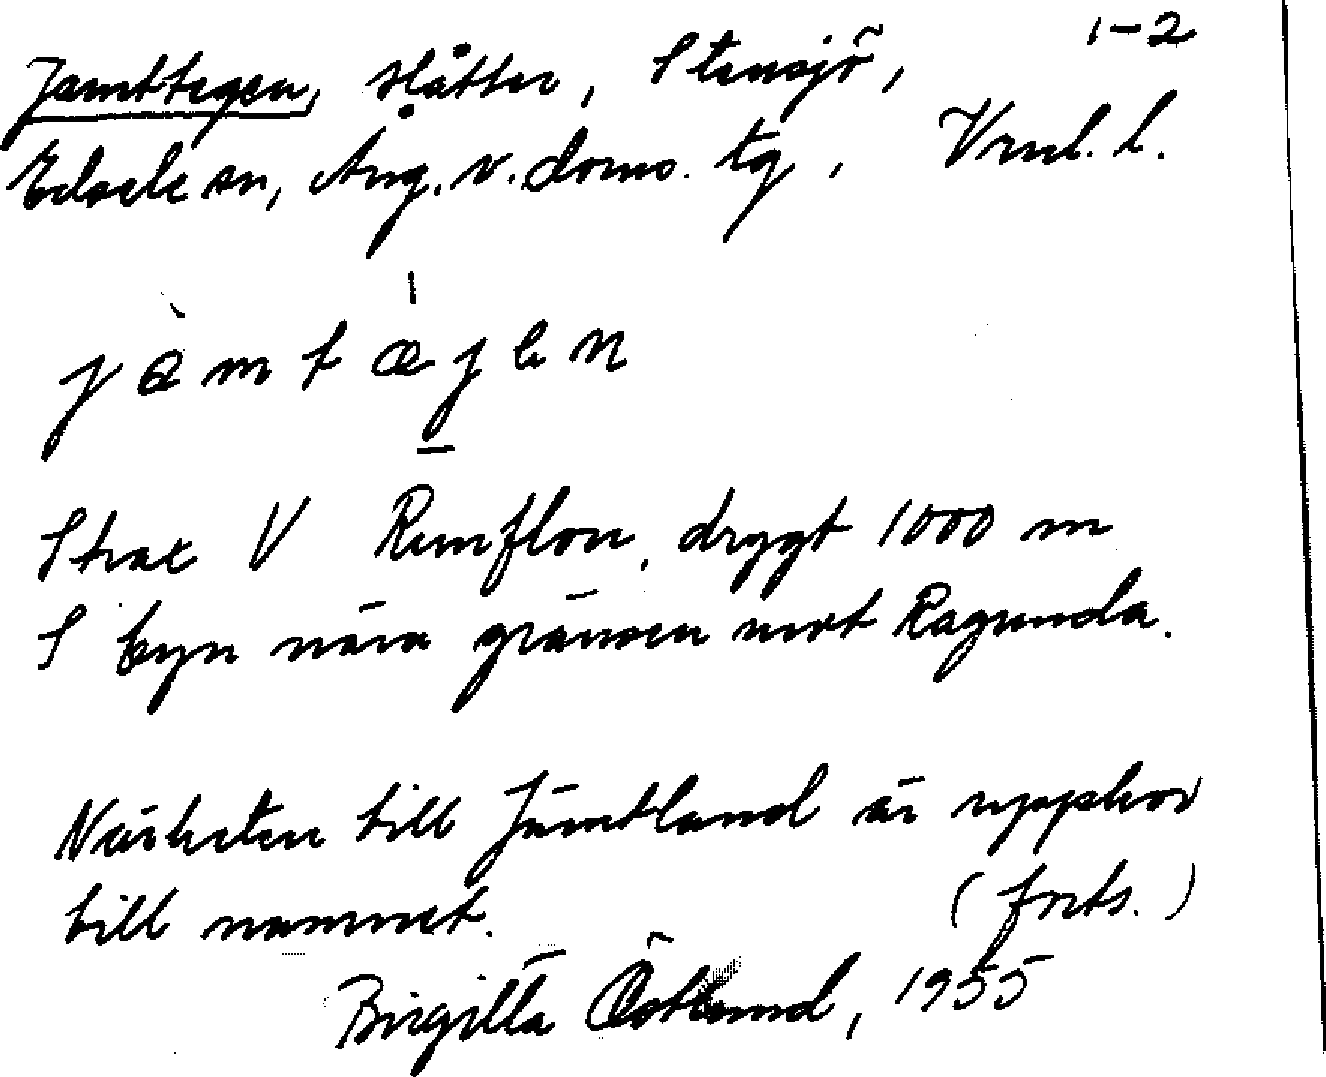 1-2
Jamttegen, slåtter, Stensjö,
Edsele sn, Ång. v. doms. tg, Vml. l.
jàmtæ̀jen
Strax V Remflon, drygt 1000 m
S byn nära gränsen mot Ragunda.
Närheten till Jämtland är upphov
till namnet. (forts.)
Birgitta Östlund, 1955